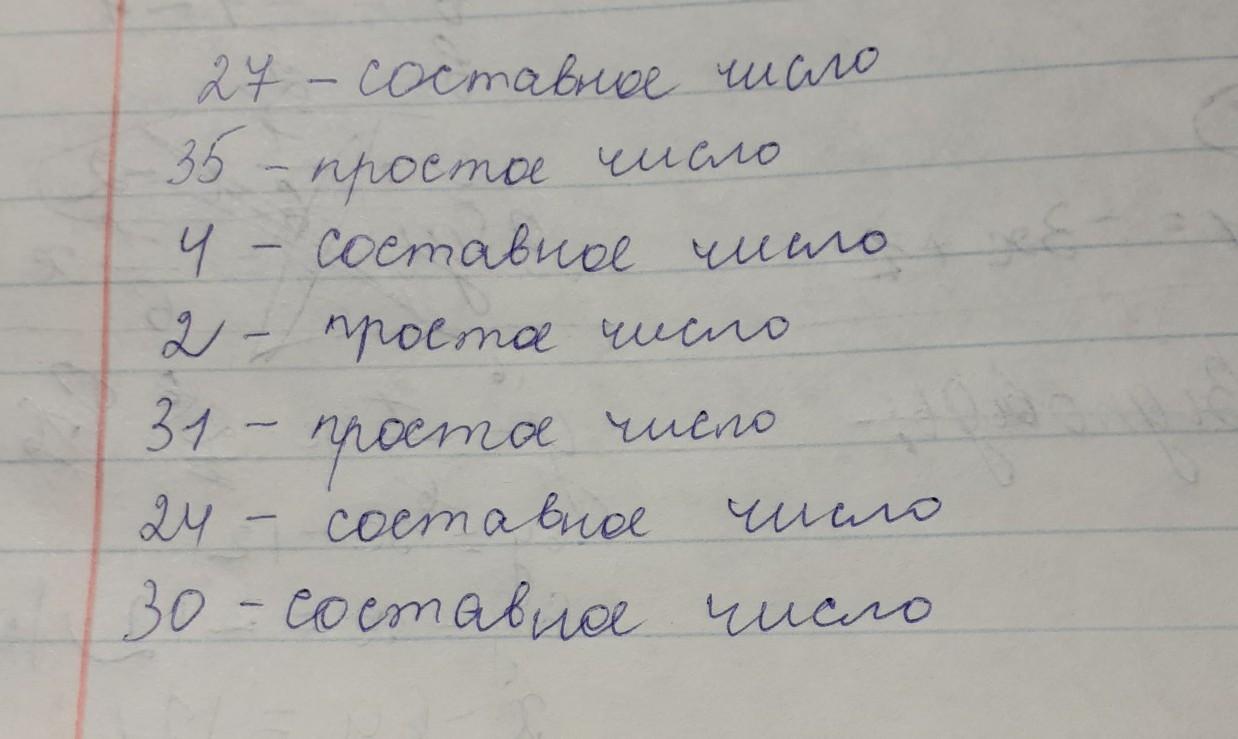 27 - составное число
35 - простое число
4 - составное число
2 - простое число
31 - простое число
24 - составное число
30 - составное число